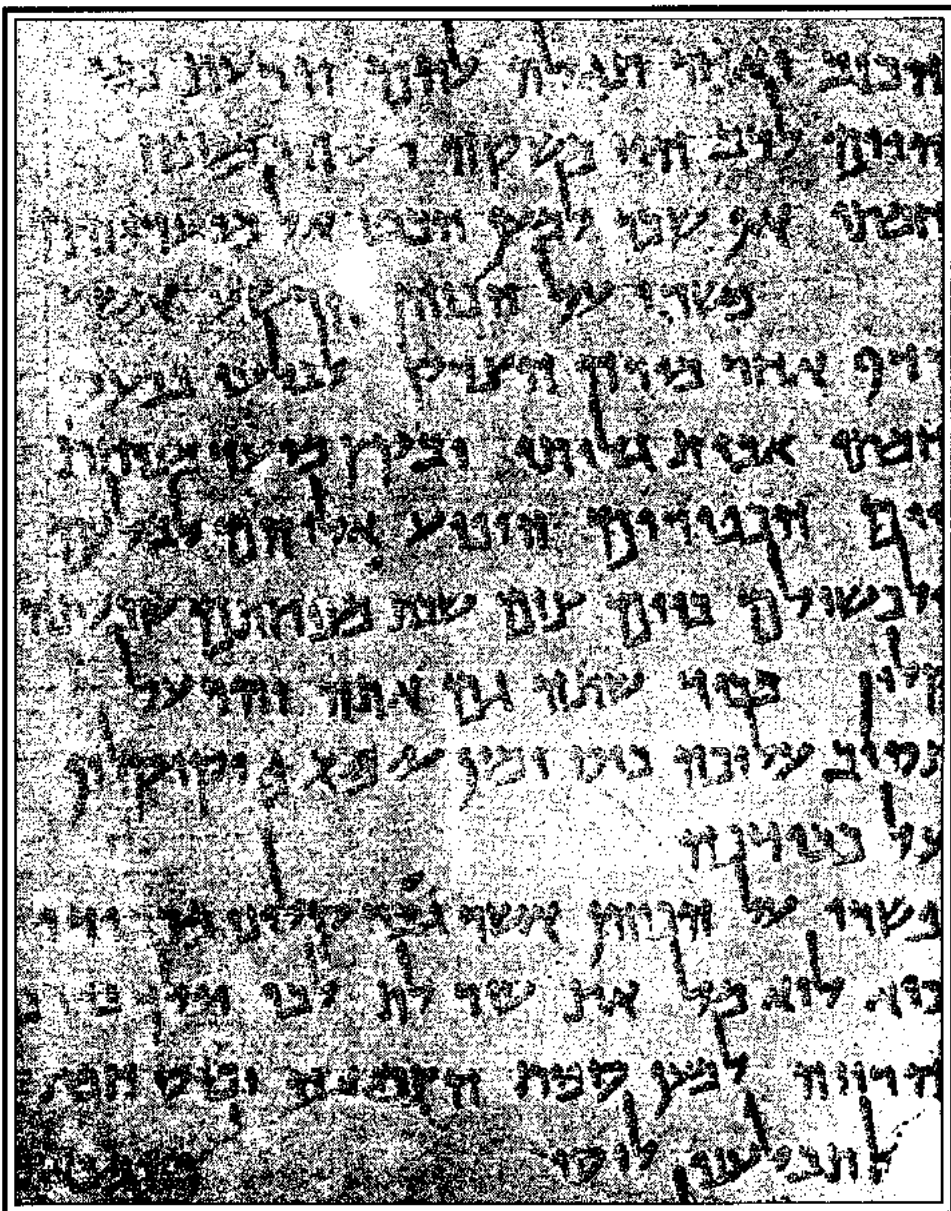 הכזב ואחר תגלה להם הדעת כמי
היים לרב הוי משקה רעיהו מספח
חמתו אף שכר למען הבט אל מועדיהם
פשרו על הכוהן הרשע אשר
רדף אחר מורה הצדק לבלעו בכעס
חמתו אבית גלותו ובקץ מועד מנוחת
יום הכפורים הופיע אליהם לבלעם
ולכשילם ביום צום שבת מנוחתם שבעתה
קלון מכבוד שתה גם אתה והרעל
תסוב עליכה כוס ימין 𐤉𐤄𐤅𐤄 וקיקלון
על כבודכה
פשרו על הכוהן אשר גבר קלונו מכבודו
כיא לוא מל את עורלת לבו וילך בדרכי
הרווה למען ספות הצמאה וכוס חמת
תבלענו לוסיף